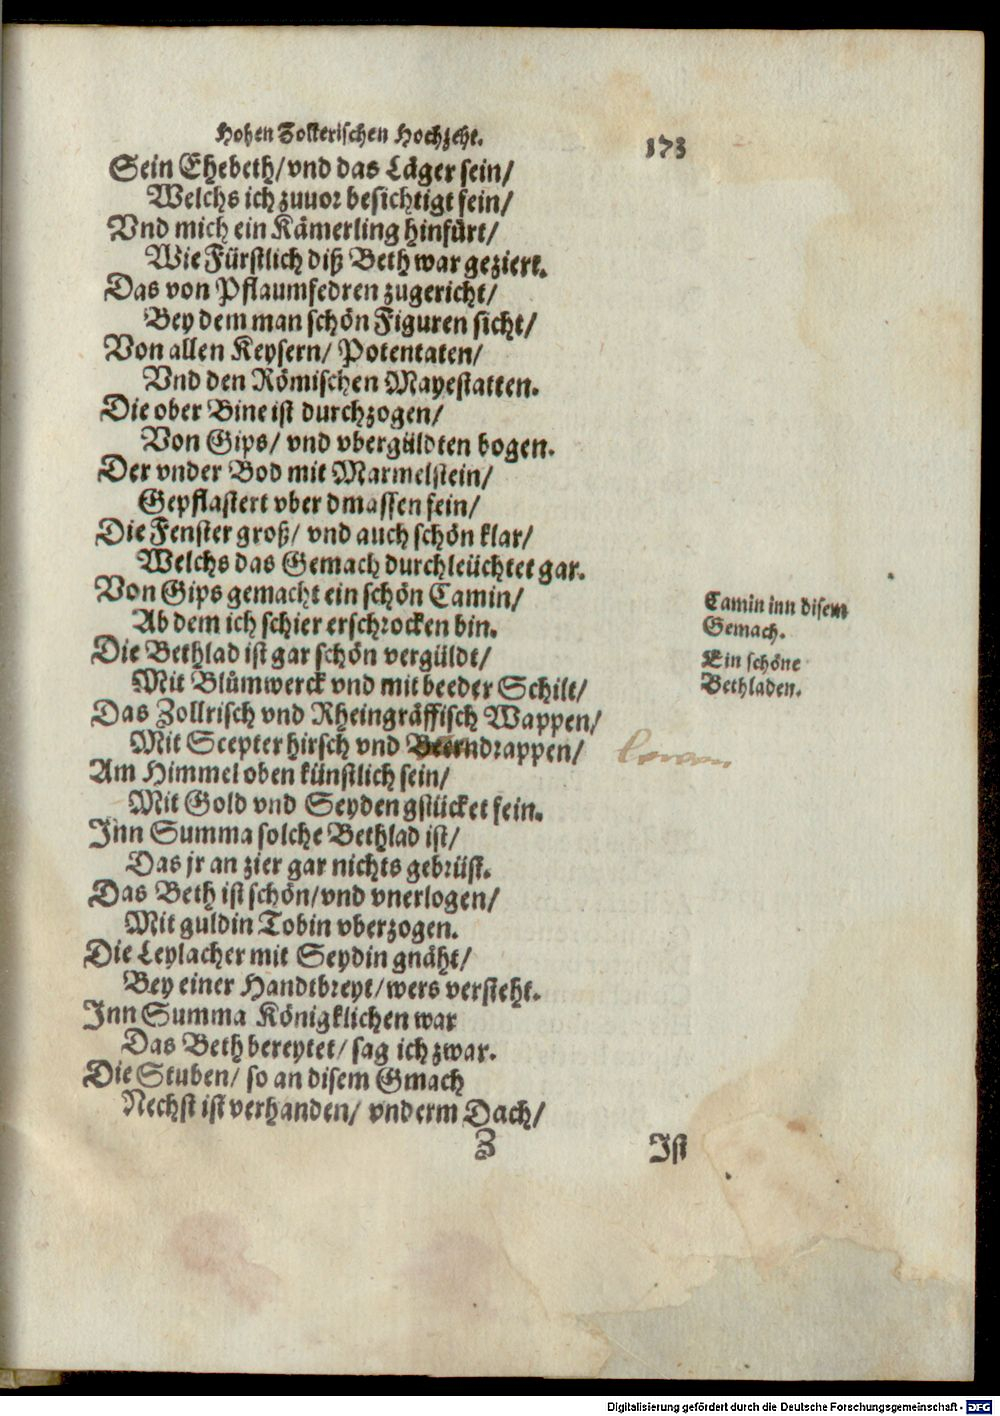 Hohen Zollerischen Hochzeyt.
173
Sein Ehebeth/ vnd das Läger sein/
Welchs ich zuuor besichtigt fein/
Vnd mich ein Kämerling hinfürt/
Wie Fürstlich diß Beth war geziert.
Das von Pflaumfedren zugericht/
Bey dem man schön Figuren sicht/
Von allen Keysern/ Potentaten/
Vnd den Römischen Mayestatten.
Die ober Bine ist durchzogen/
Von Gips/ vnd vbergüldten bogen.
Der vnder Bod mit Marmelstein/
Gepflastert vber dmassen fein/
Die Fenster groß/ vnd auch schön klar/
Welchs das Gemach durchleüchtet gar.
Von Gips gemacht ein schön Camin/
Ab dem ich schier erschrocken bin.
Die Bethlad ist gar schön vergüldt/
Mit Blůmwerck vnd mit beeder Schilt/
Das Zollrisch vnd Rheingräffisch Wappen/
Mit Scepter hirsch vnd
Am Himmel oben künstlich sein/
Mit Gold vnd Seyden gstücket fein.
Jnn Summa solche Bethlad ist/
Das jr an zier gar nichts gebrüst.
Das Beth ist schön/ vnd vnerlogen/
Mit guldin Tobin vberzogen.
Die Leylacher mit Seydin gnäht/
Bey einer Handtbreyt/ wers versteht.
Jnn Summa Königklichen war
Das Beth bereytet/ sag ich zwar.
Die Stuben/ so an disem Gmach
Nechst ist verhanden/ vnderm Dach/
Z
Jst
Camin inn disem
Gemach.
Ein schöne
Bethladen.
Digitalisierung gefördert durch die Deutsche Forschungsgemeinschaft - DFG